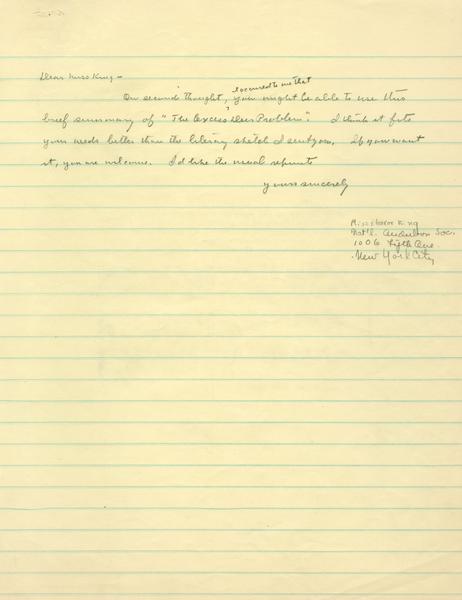 Dear Miss King -
On second thought, it occured to me that you might be able to use this
brief summary of "The Excess Deer Problem". I think it fits
your needs better than the literary sketch I sent you. If you want
it, you are welcome. I'd like the usual reprints
yours sincerely
Miss King
Nat'l. Audubon Soc.
1006 Fifth Ave.
New York City